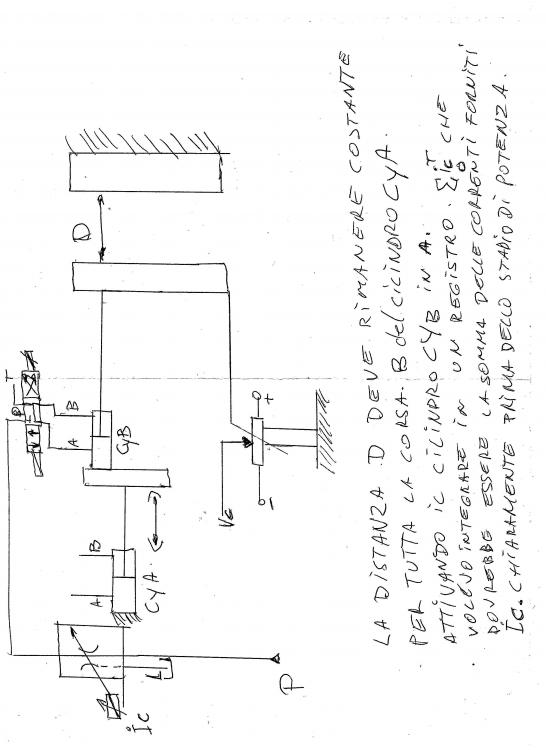 LA DISTANZA D DEVE RIMANERE COSTANTE
PER TUTTA LA CORSA. B del CILINDRO CyA.
ATTIVANDO IL CILINDRO CYB IN A.
VOLEVO INTEGRARE IN UN REGISTRO. Σ ic T 0 CHE
DOVREBBE ESSERE LA SOMMA DELLE CORRENTI FORNITI
Ic. CHIARAMENTE PRIMA DELLO STADIO DI POTENZA.
D
P
T
A
B
CyB
A
B
CYA.
Vc
+
-
L
P
Ic